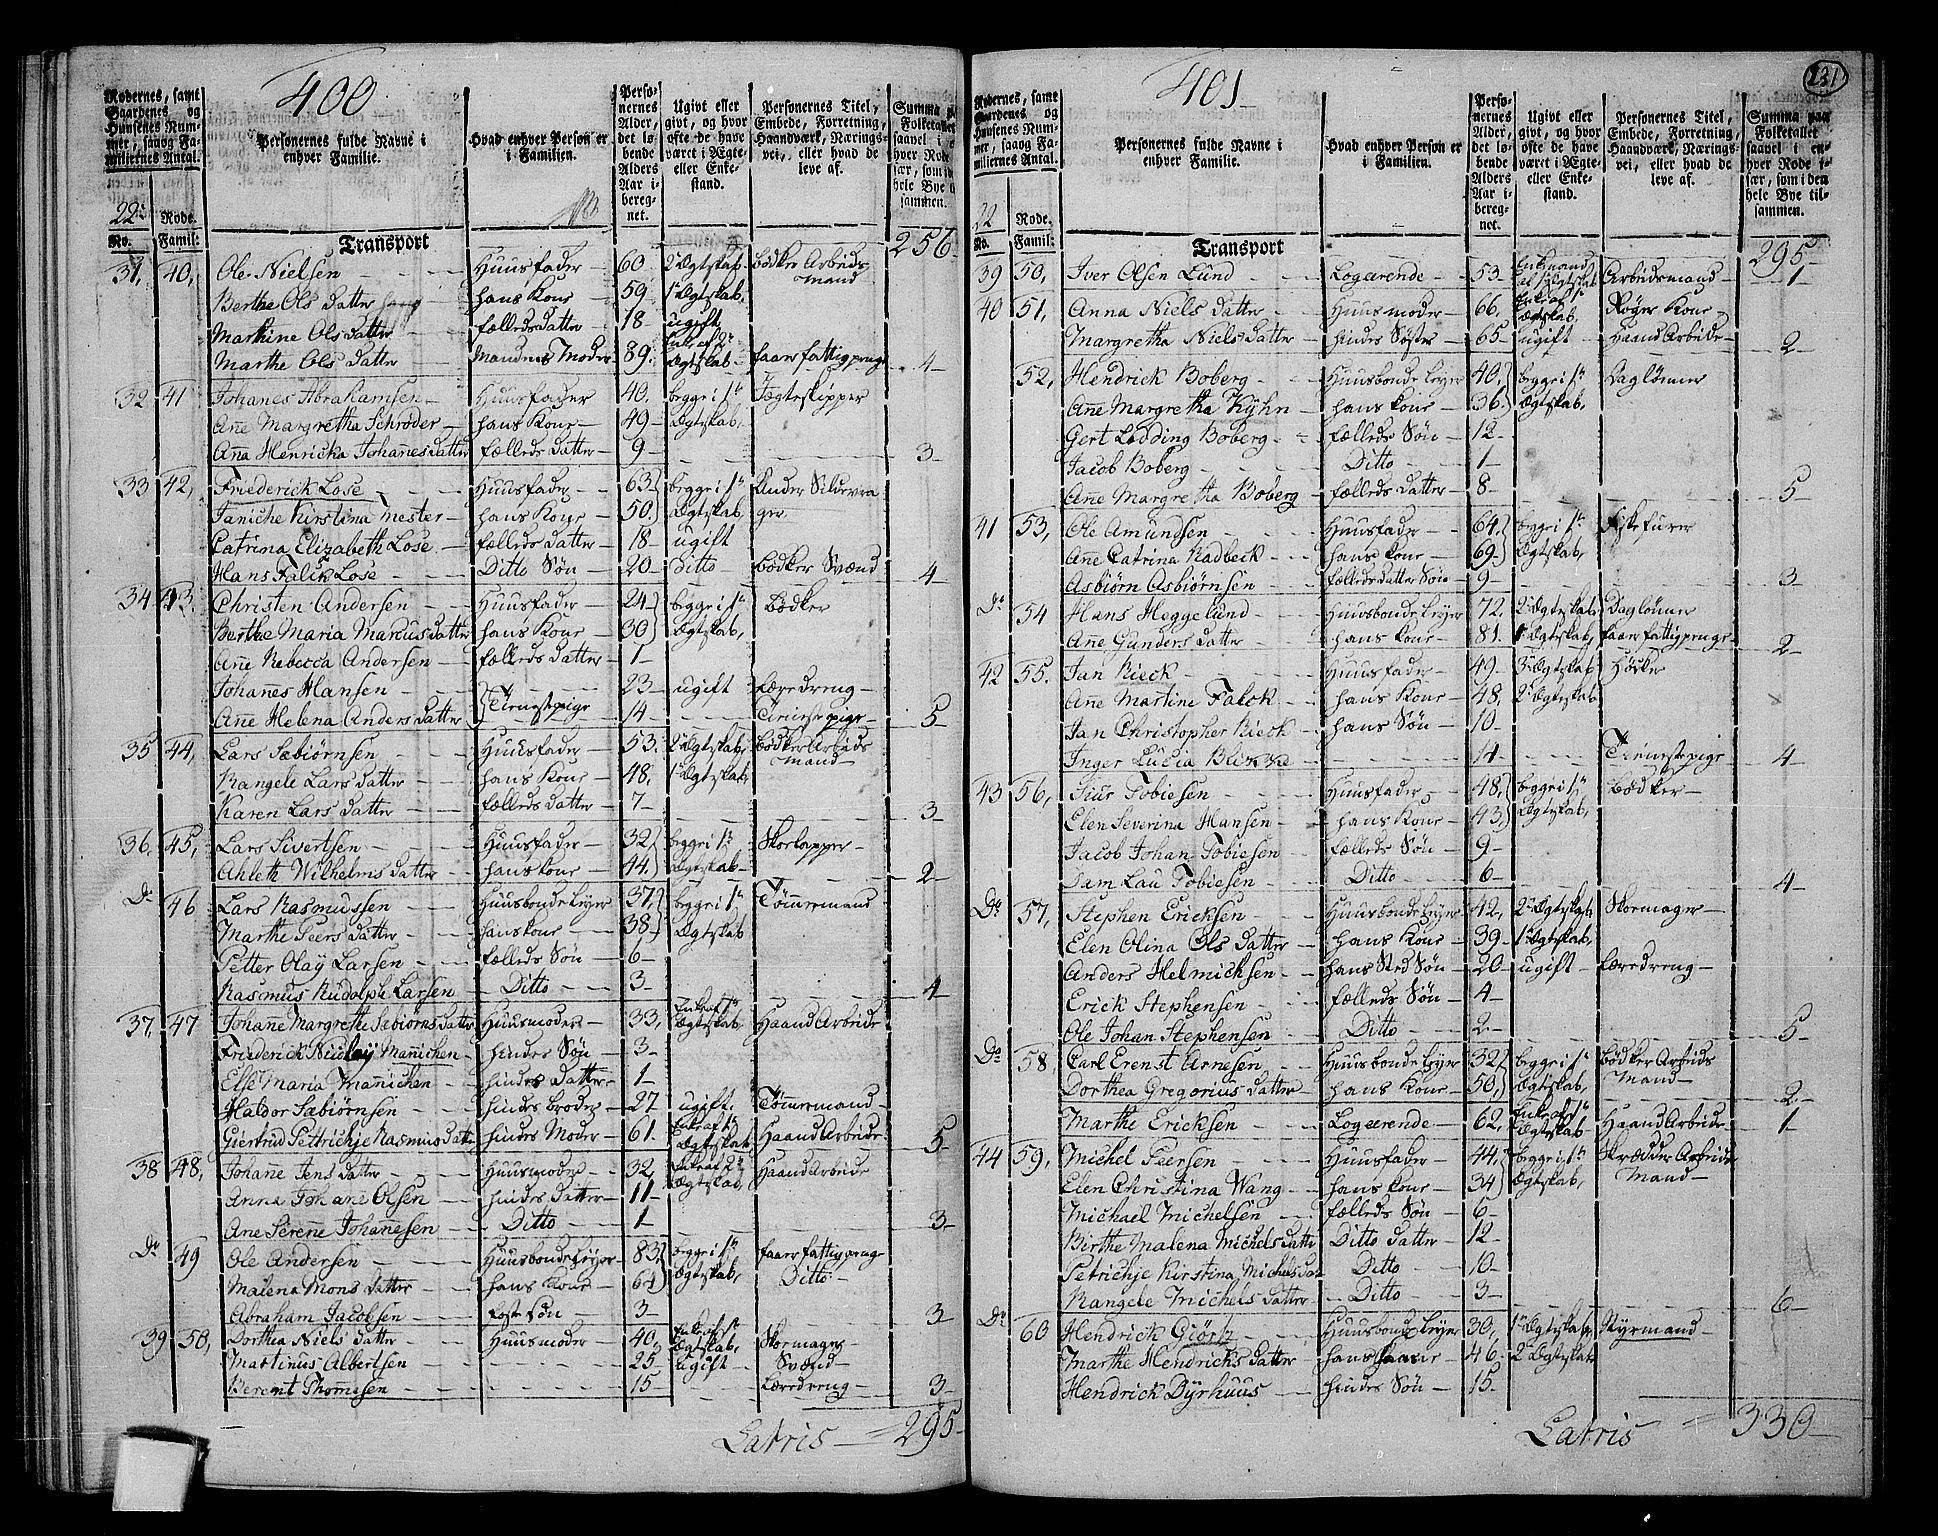 400
Rodernes, samt Gaardenes og Huusenes Nummer, saaog Familiernes Antal.
Personernes fulde Navne i enhver Familie.
Hvad enhver Person er i Familien.
Personernes Alder, det løbende Alders Aar iberegnet.
Ugivt eller givt, og hvor ofte de have været i Ægte- eller Enkestand.
Personernes Titel, Embede, Forretning, Haandværk, Næringsvei, eller hvad de leve af.
Summa paa Folketallet saavel i enhver Rode især, som i den hele Bye tilsammen.
22de Rode.
No. Famil:
Transport 256
31, 40, Ole Nielsen Huusfader 60 2de Ægtskab Bødker Arbeids mand
Berthe Ols datter hans Kone 59 1te Ægtskab,
Marthine Ols datter fælleds datter 18 ugift
Marthe Ols datter Mandens Moder 89. Enke af 2de Ægtskab faaer fattigpenge 4
32 41 Johanes Abrahamsen Huusfader 40. begge i 1te Jægteskipper
Añe Margretha Schrøder hans Kone 49 Ægtskab,
Ana Henricka Johanes datter fælleds datter 9 3
33 42, Friederick Lose Huusfader 63 begge i 1te Under Sildevra
Janiche Kirstina Mester hans Kone 50 Ægtskab ger
Catrina Elizabeth Lose fælleds datter 18 ugift
Hans Falck Lose Ditto Søn 20 Ditto Bødker Svænd 4
34 43. Christen Andersen Huusfader 24 begge i 1te Bødker
Berthe Maria Marcus datter hans Kone 30 Ægtskab,
Añe Rebecca Andersen fælleds datter 1
Johañes Hansen 23 ugift læredreng
Añe Helena Anders datter Tieneste pige 14 Tieneste pige 5
35 44, Lars Sæbiørnsen Huusfader 53. 2de Ægtskab, Bødker Arbeids mand
Rangele Lars datter hans Kone 48, 1te Ægtskab
Karen Lars datter fælleds datter 7 3
36. 45, Lars Sivertsen Huusfader 32 begge i 1te Skoelapper
Ahleth Wilhelms datter hans kone 44. Ægtskab 2
Do 46 Lars Rasmussen Huusbonde Leyer 37, begge i 1te Tømmermand
Marthe Peers datter hans kone 38 Ægtskab
Petter Olaÿ Larsen fælleds Søn 6
Rasmus Rudolph Larsen Ditto 3 4
37, 47 Johañe Margrethe Sæbiørns datter Huusmoder 33, Enke af 1te Ægtskab, Haand Arbeide
Friederick Nicolaÿ Mañichen hindes Søn 3
Else Maria Mañichen hindes datter 1
Haldor Sæbiørnsen hindes broder 27 ugift. Tømmermand
Giertrud Pettrichje Rasmus datter hindes Moder 61. Enke af 1te Ægtskab Haand Arbeide 5
38 48, Johañe Jens datter Huusmoder 32 Enke af 2de Ægtskab, Haand Arbeide
Anna Johane Olsen hindes datter 11
Ane Sereñe Johanesen Ditto 1 3
Do 49 Ole Andersen Huusbonde Leyer 83, begge i 1te faaer fattigpenge
Malena Mons datter hans Kone 64 Ægtskab, Ditto
Abraham Jacobsen Foster Søn 3 3
39 50, Dorthea Niels datter Huusmoder 40, Enke af 1te Ægtskab, Skoemager
Martinus Albertsen 25 ugift Svænd
Berent Thomesen 15 Læredreng 3
Latris 295
401 231
Rodernes, samt Gaardenes og Huusenes Nummer, saaog Familiernes Antal.
Personernes fulde Navne i enhver Familie.
Hvad enhver Person er i Familien.
Personernes Alder, det løbende Alders Aar iberegnet.
Ugivt eller givt, og hvor ofte de have været i Ægte- eller Enkestand.
Personernes Titel, Embede, Forretning, Haandværk, Næringsvei, eller hvad de leve af.
Summa paa Folketallet saavel i enhver Rode især, som i den hele Bye tilsammen.
22 Rode.
No. Famil:
Transport 295
39 50, Iver Olsen Lund Logerende 53 Enkemand af 1te Ægtskab Arbeidsmand 1
40 51, Anna Niels datter Huusmoder 66, Enke af 1te Ægtskab. Røger Kone
Margretha Niels datter hindes Søster 65 ugift Haand Arbeide 2
52, Hendrick Boberg Huusbonde Leyer 40, begge i 1te Daglønner
Añe Margretha Kÿhn hans kone 36 Ægtskab,
Gert Lodding Boberg fælleds Søn 12
Jacob Boberg Ditto 1
Añe Margretha Boberg fælleds datter 8 5
41 53, Ole Amundsen Huusfader 64 begge i 1te Fiskefører
Añe Catrina Radbeck hans kone 69 Ægtskab,
Asbiørn Asbiørnsen fælleds datter Søn 9 3
Do 54 Hans Heggelund Huusbonde Leyer 72 2de Ægtskab Daglønner
Añe Gunders datter hans kone 81. 1te Ægtskab, faaer fattigpenge 2
42 55. Jan Rieck Huusfader 49 3de Ægtskab Høcker
Añe Martine Falck hans Kone 48, 2de Ægtskab
Jan Christopher Rieck hans Søn 10
Inger Lucia 14 Tienestepige 4
43 56, Siur Tobiesen Huusfader 48, begge i 1te Bødker
Elen Severina Hansen hans Kone 43, Ægtskab,
Jacob Johan Tobiesen fælleds Søn 9
Dam Lau Tobiesen Ditto 6 4
Do 57, Stephen Ericksen Huusbonde Leyer 42, 2de Ægtskab, Skoemager
Elen Olina Ols datter hans Kone 39 1te Ægtskab,
Anders Helmichsen hans Sted Søn 20 ugift læredreng
Erick Stephensen fælleds Søn 4
Ole Johan Stephensen Ditto 2 5
Do 58, Carl Erenst Arnesen Huusbonde Leyer 32 begge i 1te Bødker Arbeids
Dorthea Gregorius datter hans Kone 50 Ægtskab, Mand 2
Marthe Ericksen Logerende 62, Enke af 1te Ægtskab Haand Arbeide 1
44 59, Michel Peersen Huusfader 44, begge i 1te Skrædder Arbeide
Elen Christina Wang hans kone 34 Ægtskab, Mand
Michael Michelsen fælleds Søn 6
Birthe Malena Michels datter Ditto datter 12
Petrichje Kirstina Michels dat Ditto 10
Rangele Michels datter Ditto 3 6
Do 60 Hendrick Giörtz Huusbonde Leyer 30, 1te Ægtskab, Styrmand
Marthe Hendrichs datter hans kone 46 2de Ægtskab
Hendrick Dyrhuus hindes Søn 15
Latris 330